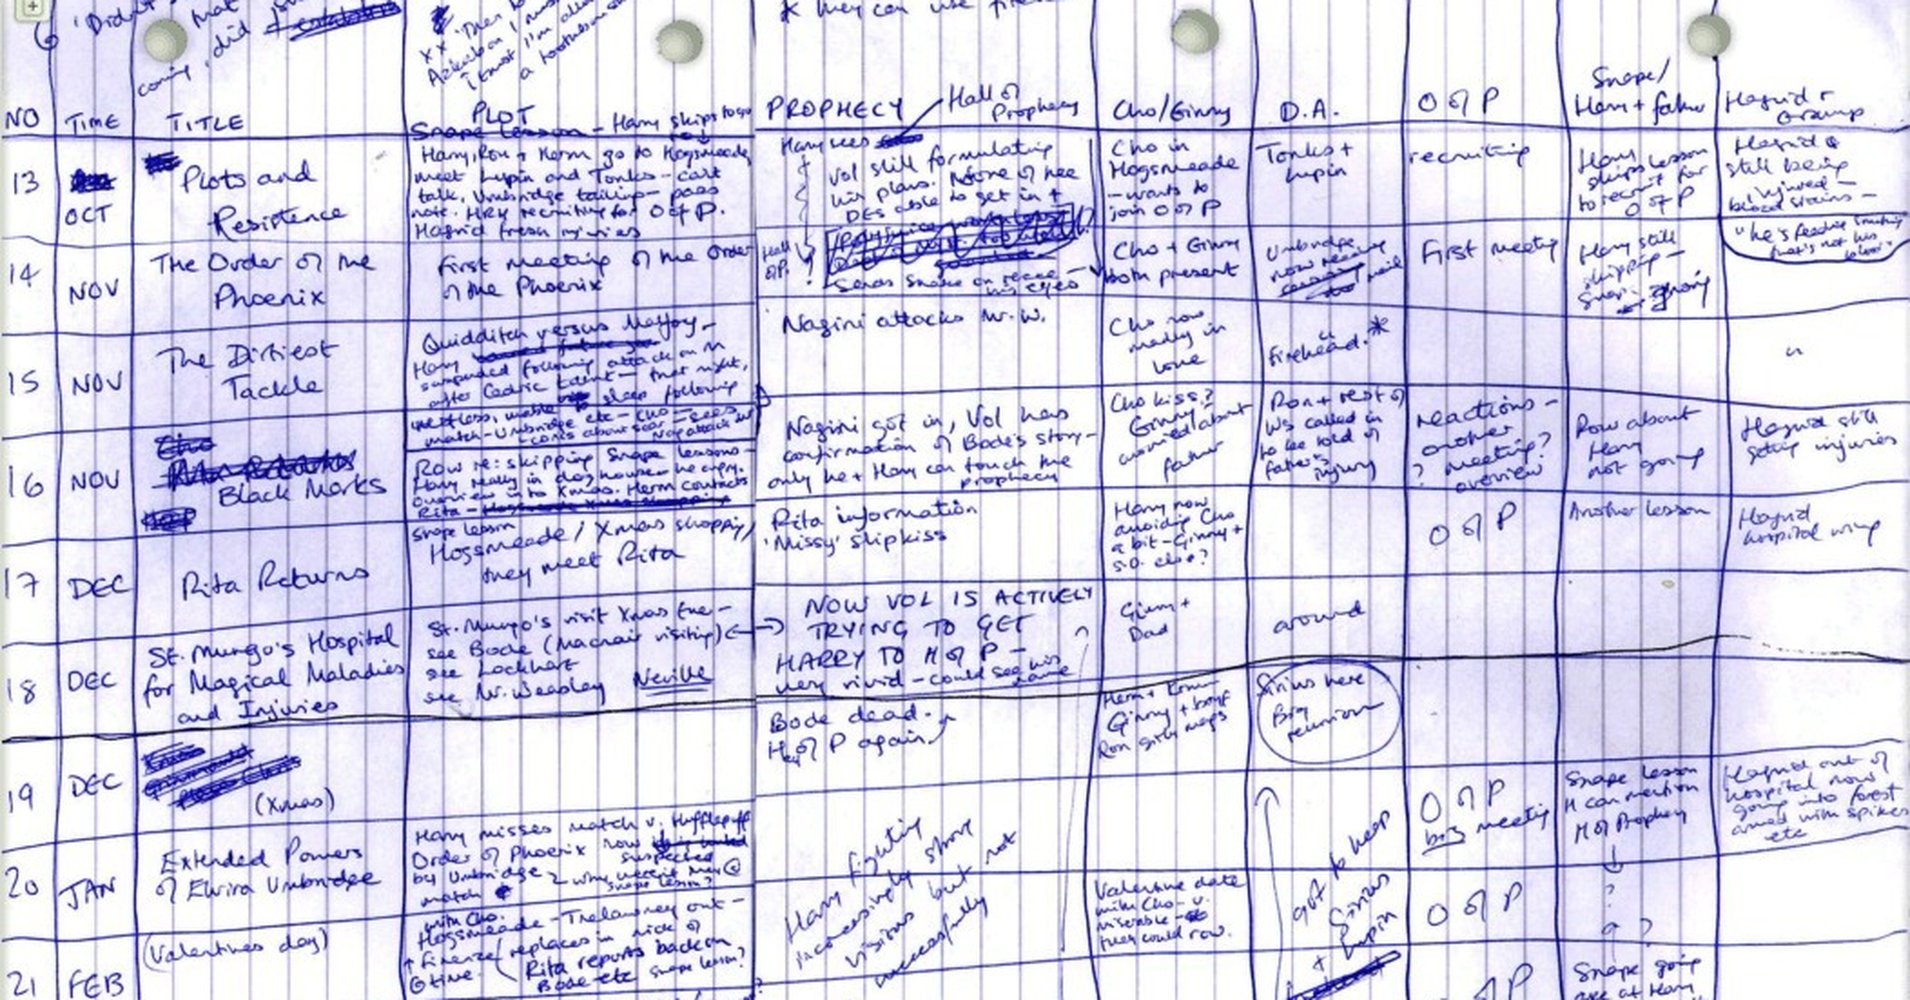 6 'Didn't
coming, did
XX
Azkaban
I trust I'm
a toothbrush
* they can use
NO
TIME
TITLE
PLOT
PROPHECY
Hall of
Prophecy
Cho/Ginny
D.A.
O of P
Snape/
Harry + father
Hagrid +
Grawp
13
OCT
Plots and
Resistence
Snape lesson - Harry skips to go
Harry, Ron + Herm go to Hogsmeade,
meet Lupin and Tonks - can't
talk, Umbridge tailing - pass
note. HRH recruiting for O of P.
Hagrid fresh injuries
Harry sees
Vol still formulating
his plans. None of his
DEs able to get in +
Hall
of P.
?
Sends snake on recce -
his eyes
Cho in
Hogsmeade
- wants to
join O of P
Tonks +
Lupin
recruiting
Harry
skips lesson
to recruit for
O of P
Hagrid
still being
injured -
blood stains -
14
NOV
The Order of the
Phoenix
First Meeting of the Order
of the Phoenix
Cho + Ginny
both present
Umbridge
now reading
mail
First meeting
Harry still
skipping -
Snape
"he's feeding
that's not his
blood"
15
NOV
The Dirtiest
Tackle
Quidditch versus Malfoy -
Harry
suspended following attack on M
after Cedric taunt - that night,
restless, unable to sleep following
match - Umbridge etc - Cho - sees
cares about scar - Nag attack
Nagini attacks Mr. W.
Cho now
madly in
love
"
Firehead.*
"
16
NOV
Black Marks
Row re: skipping Snape lessons -
Harry really in doghouse - he angry.
Overview into Xmas. Herm contacts
Rita - Hogsmeade Xmas shopping
Nagini got in, Vol has
confirmation of Bode's story -
only he + Harry can touch the
prophecy
Cho kiss?
Ginny
worried about
father
Ron + rest of
Ws called in
to be told of
father's
injury
reactions -
another
meeting?
? overview
Row about
Harry
not going
Hagrid still
getting injuries
17
DEC
Rita Returns
Snape lesson
Hogsmeade / Xmas shopping /
they meet Rita
Rita information
'Missy' slip kiss
Harry now
avoiding Cho
a bit - Ginny +
s.o. else?
O of P
Another lesson
Hagrid
hospital wing
18
DEC
St. Mungo's Hospital
for Magical Maladies
and Injuries
St. Mungo's visit Xmas Eve -
see Bode (Macnair visiting)
see Lockhart
see Mr. Weasley Neville
NOW VOL IS ACTIVELY
TRYING TO GET
HARRY TO H of P -
very vivid - could see his
name
Ginny +
Dad
around
19
DEC
(Xmas)
Bode dead.
H of P again
Herm + Krum
Ginny + boyf
Ron girls
Sirius here
Big
reunion
20
JAN
Extended Powers
of Elvira Umbridge
Harry misses match v. Hufflepuff
Order of Phoenix now
suspected
by Umbridge, why weren't they @
match
snape lesson?
Harry fighting
increasingly strong
visions but not
successfully
got to keep
Sirius
+ Lupin
O of P
big meeting
Snape lesson
H can mention
H of Prophecy
?
Hagrid out of
hospital now
going into forest
armed with spikes
etc
21
FEB
(Valentines day)
with Cho.
Hogsmeade - Trelawney out -
Firenze replaces in nick of
time.
Rita reports back on
Bode etc snape lesson?
Valentine date
with Cho - v.
miserable -
they could row.
O of P
? ?
O of P
Snape going
at Harry